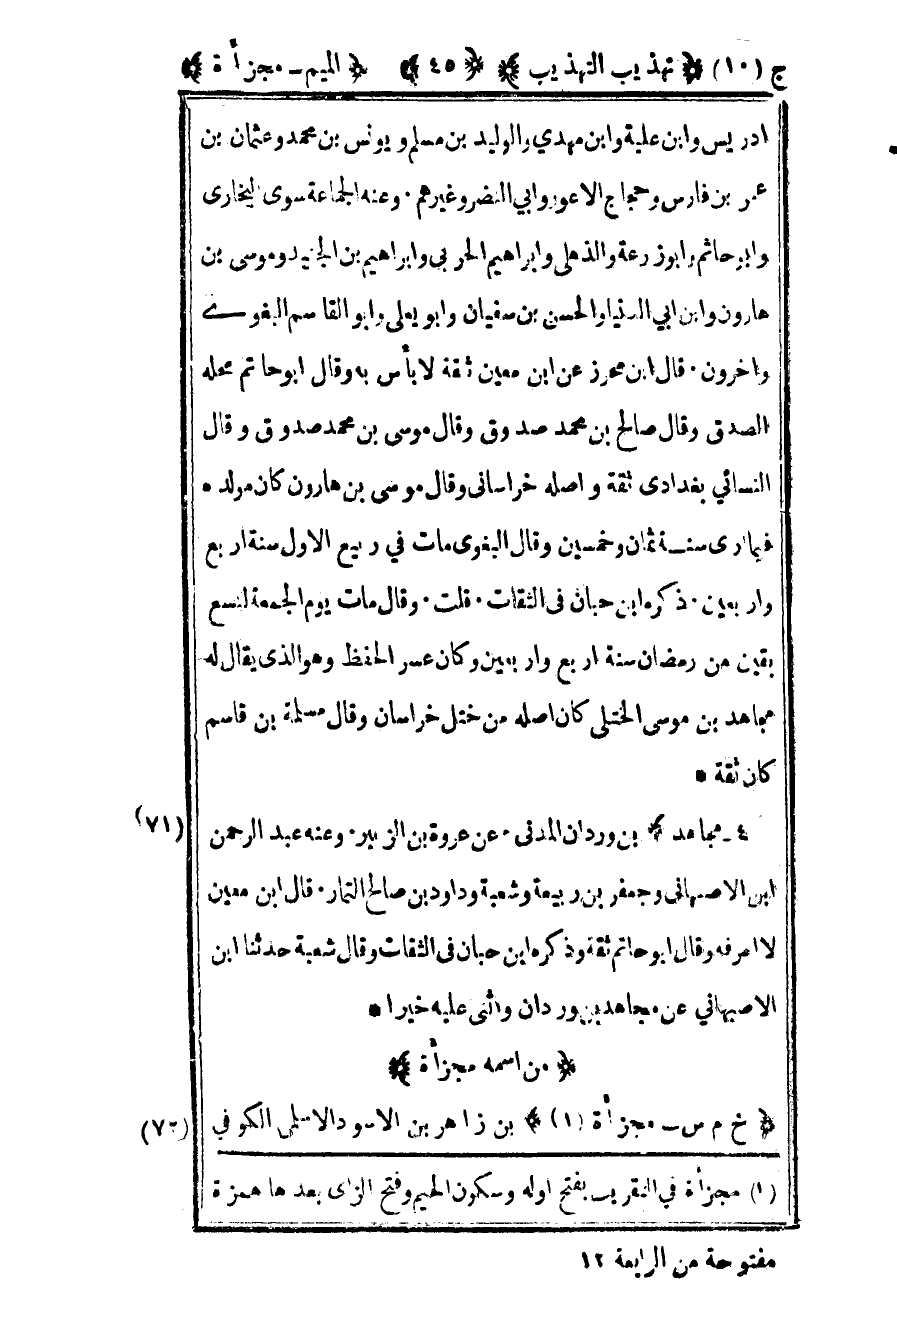 ج (١٠) ﴿ تهذيب التهذيب ﴾ ﴿ ٤٥ ﴾ ﴿ الميم - مجزأة ﴾
ادريس وابن علية وابن مهدي والوليد بن مسلم ويونس بن محمد وعثمان بن
عمر بن فارس وحجاج الاعور وابي النضر وغيرهم · وعنه الجماعة سوى البخارى
وابو حاتم وابو زرعة والذهلى وابراهيم الحربى وابراهيم بن الجنيد وموسى بن
هارون وابن ابي الدنيا والحسن بن سفيان وابو يعلى وابو القاسم البغوے
واخرون · قال ابن محرز عن ابن معين ثقة لا بأس به وقال ابو حاتم محله
الصدق وقال صالح بن محمد صدوق وقال موسى بن محمد صدوق وقال
النسائي بغدادى ثقة واصله خراسانى وقال موسى بن هارون كان مولده
فيما ارى سنة ثمان وخمسين وقال البغوى مات في ربيع الاول سنة اربع
واربعين · ذكره ابن حبان فى الثقات · قلت · وقال مات يوم الجمعة لتسع
بقين من رمضان سنة اربع واربعين وكان عسر الحفظ وهو الذى يقال له
مجاهد بن موسى الختلى كان اصله من ختل خراسان وقال مسلمة بن قاسم
كان ثقة *
٤ - مجاهد ﴾ بن وردان المدنى · عن عروة بن الزبير · وعنه عبد الرحمن (٧١)
ابن الاصبهانى وجعفر بن ربيعة وشعبة وداود بن صالح التمار · قال ابن معين
لا اعرفه وقال ابو حاتم ثقة وذكره ابن حبان فى الثقات وقال شعبة حدثنا ابن
الاصبهاني عن مجاهد بن وردان واثنى عليه خيرا *
﴿ من اسمه مجزأة ﴾
﴿ خ م س - مجزأة (١) ﴾ بن زاهر بن الاسود الاسلمى الكوفي (٧٢)
(١) مجزأة في التقريب بفتح اوله وسكون الجيم وفتح الزاى بعدها همزة
مفتوحة من الرابعة ١٢